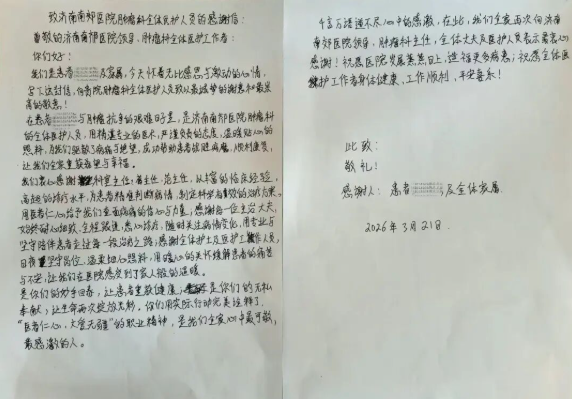 致济南南郊医院肿瘤科全体医护人员的感谢信:
尊敬的济南南郊医院领导、肿瘤科全体医护工作者:
你们好!
我们是患者 及家属,今天怀着无比感恩、激动的心情,
写下这封信,向贵院肿瘤科全体医护人员致以最诚挚的谢意和最崇
高的敬意!
在患者 与肿瘤抗争的艰难日子里,是济南南郊医院肿瘤科
的全体医护人员,用精湛专业的医术,严谨负责的态度,温暖贴心的
照料,为我们驱散了病痛与绝望,成功帮助患者祛除病魔,顺利康复,
让我们全家重获希望与幸福。
我们衷心感谢 科室主任: 主任、范主任,以丰富的临床经验,
高超的诊疗水平,为患者精准判断病情,制定科学有效的治疗方案。
用医者仁心给予我们全面抗病的信心与力量;感谢每一位主治大夫,
始终耐心细致、全程跟进,悉心诊疗,随时关注病情变化,用专业与
坚守陪伴患者走过每一段治疗之路;感谢全体护士及医护工作人员,
日夜坚守岗位、温柔细心照料,用暖心的关怀缓解患者的痛苦
与不安,让我们在医院感受到了家人般的温暖。
是你们的妙手回春,让患者重获健康;是你们的无私
奉献,让生命再次绽放光彩。你们用实际行动完美诠释了
“医者仁心、大爱无疆”的职业精神,是我们全家心中最可敬,
最感激的人。
千言万语道不尽心中的感激,在此,我们全家再次向济南
南郊医院领导、肿瘤科主任,全体大夫及医护人员表示最衷心
感谢!祝愿医院发展蒸蒸日上,造福更多病患;祝愿全体医
护工作者身体健康、工作顺利、平安喜乐!
此致:
敬礼!
感谢人:患者 及全体家属
2026年3月21日.